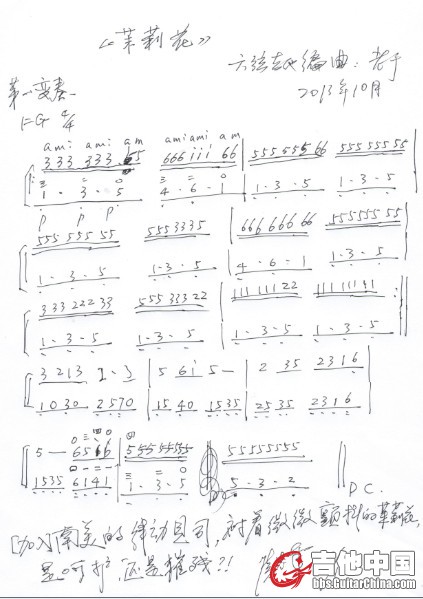 《茉莉花》
六弦 编曲：老于
2013年10月
第一变奏
1=G 4/4
ami ami am ami ami am
333 333 .55 666 iii 66 555 555 66 555 555 55
三 二 0 三 二 0
1·3·5 4·6·1 1·3·5 1·3·5
P P P
555 555 55 555 333 5 666 666 66 555 555 55
1·3·5 1·3·5 4·6·1 1·3·5
333 222 33 555 333 22 111 111 22 111 111 11
1·3·5 1·3·5 1·3·5 1·3·5
3 2 1 3 2· 5 6 i 5 — 2 35 2 3 1 6
1030 2570 1540 1535 2535 2316
5 — 5 5 5 5 5 5 5 5 55555555
1535 6141 1·3·5 5·3·2
D.C.
[加入南美的律动 对着微微颤抖的茉莉花
是呵护 还是摧残?!
吉他中国
bbs.GuitarChina.com